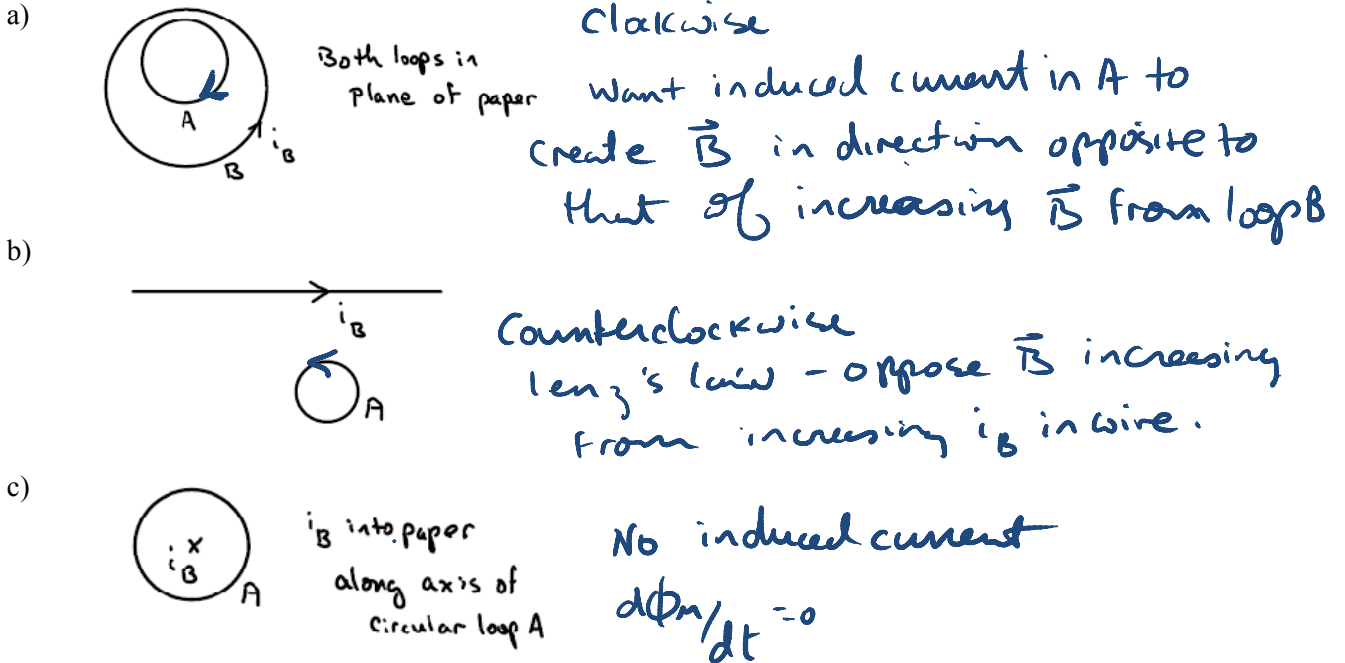 a)
A
B
i_B
Both loops in
plane of paper
Clockwise
want induced current in A to
create B⃗ in direction opposite to
that of increasing B⃗ from loop B
b)
i_B
A
Counterclockwise
lenz's law - oppose B⃗ increasing
from increasing i_B in wire.
c)
x
i_B
A
i_B into paper
along axis of
circular loop A
No induced current
dΦm/dt =0